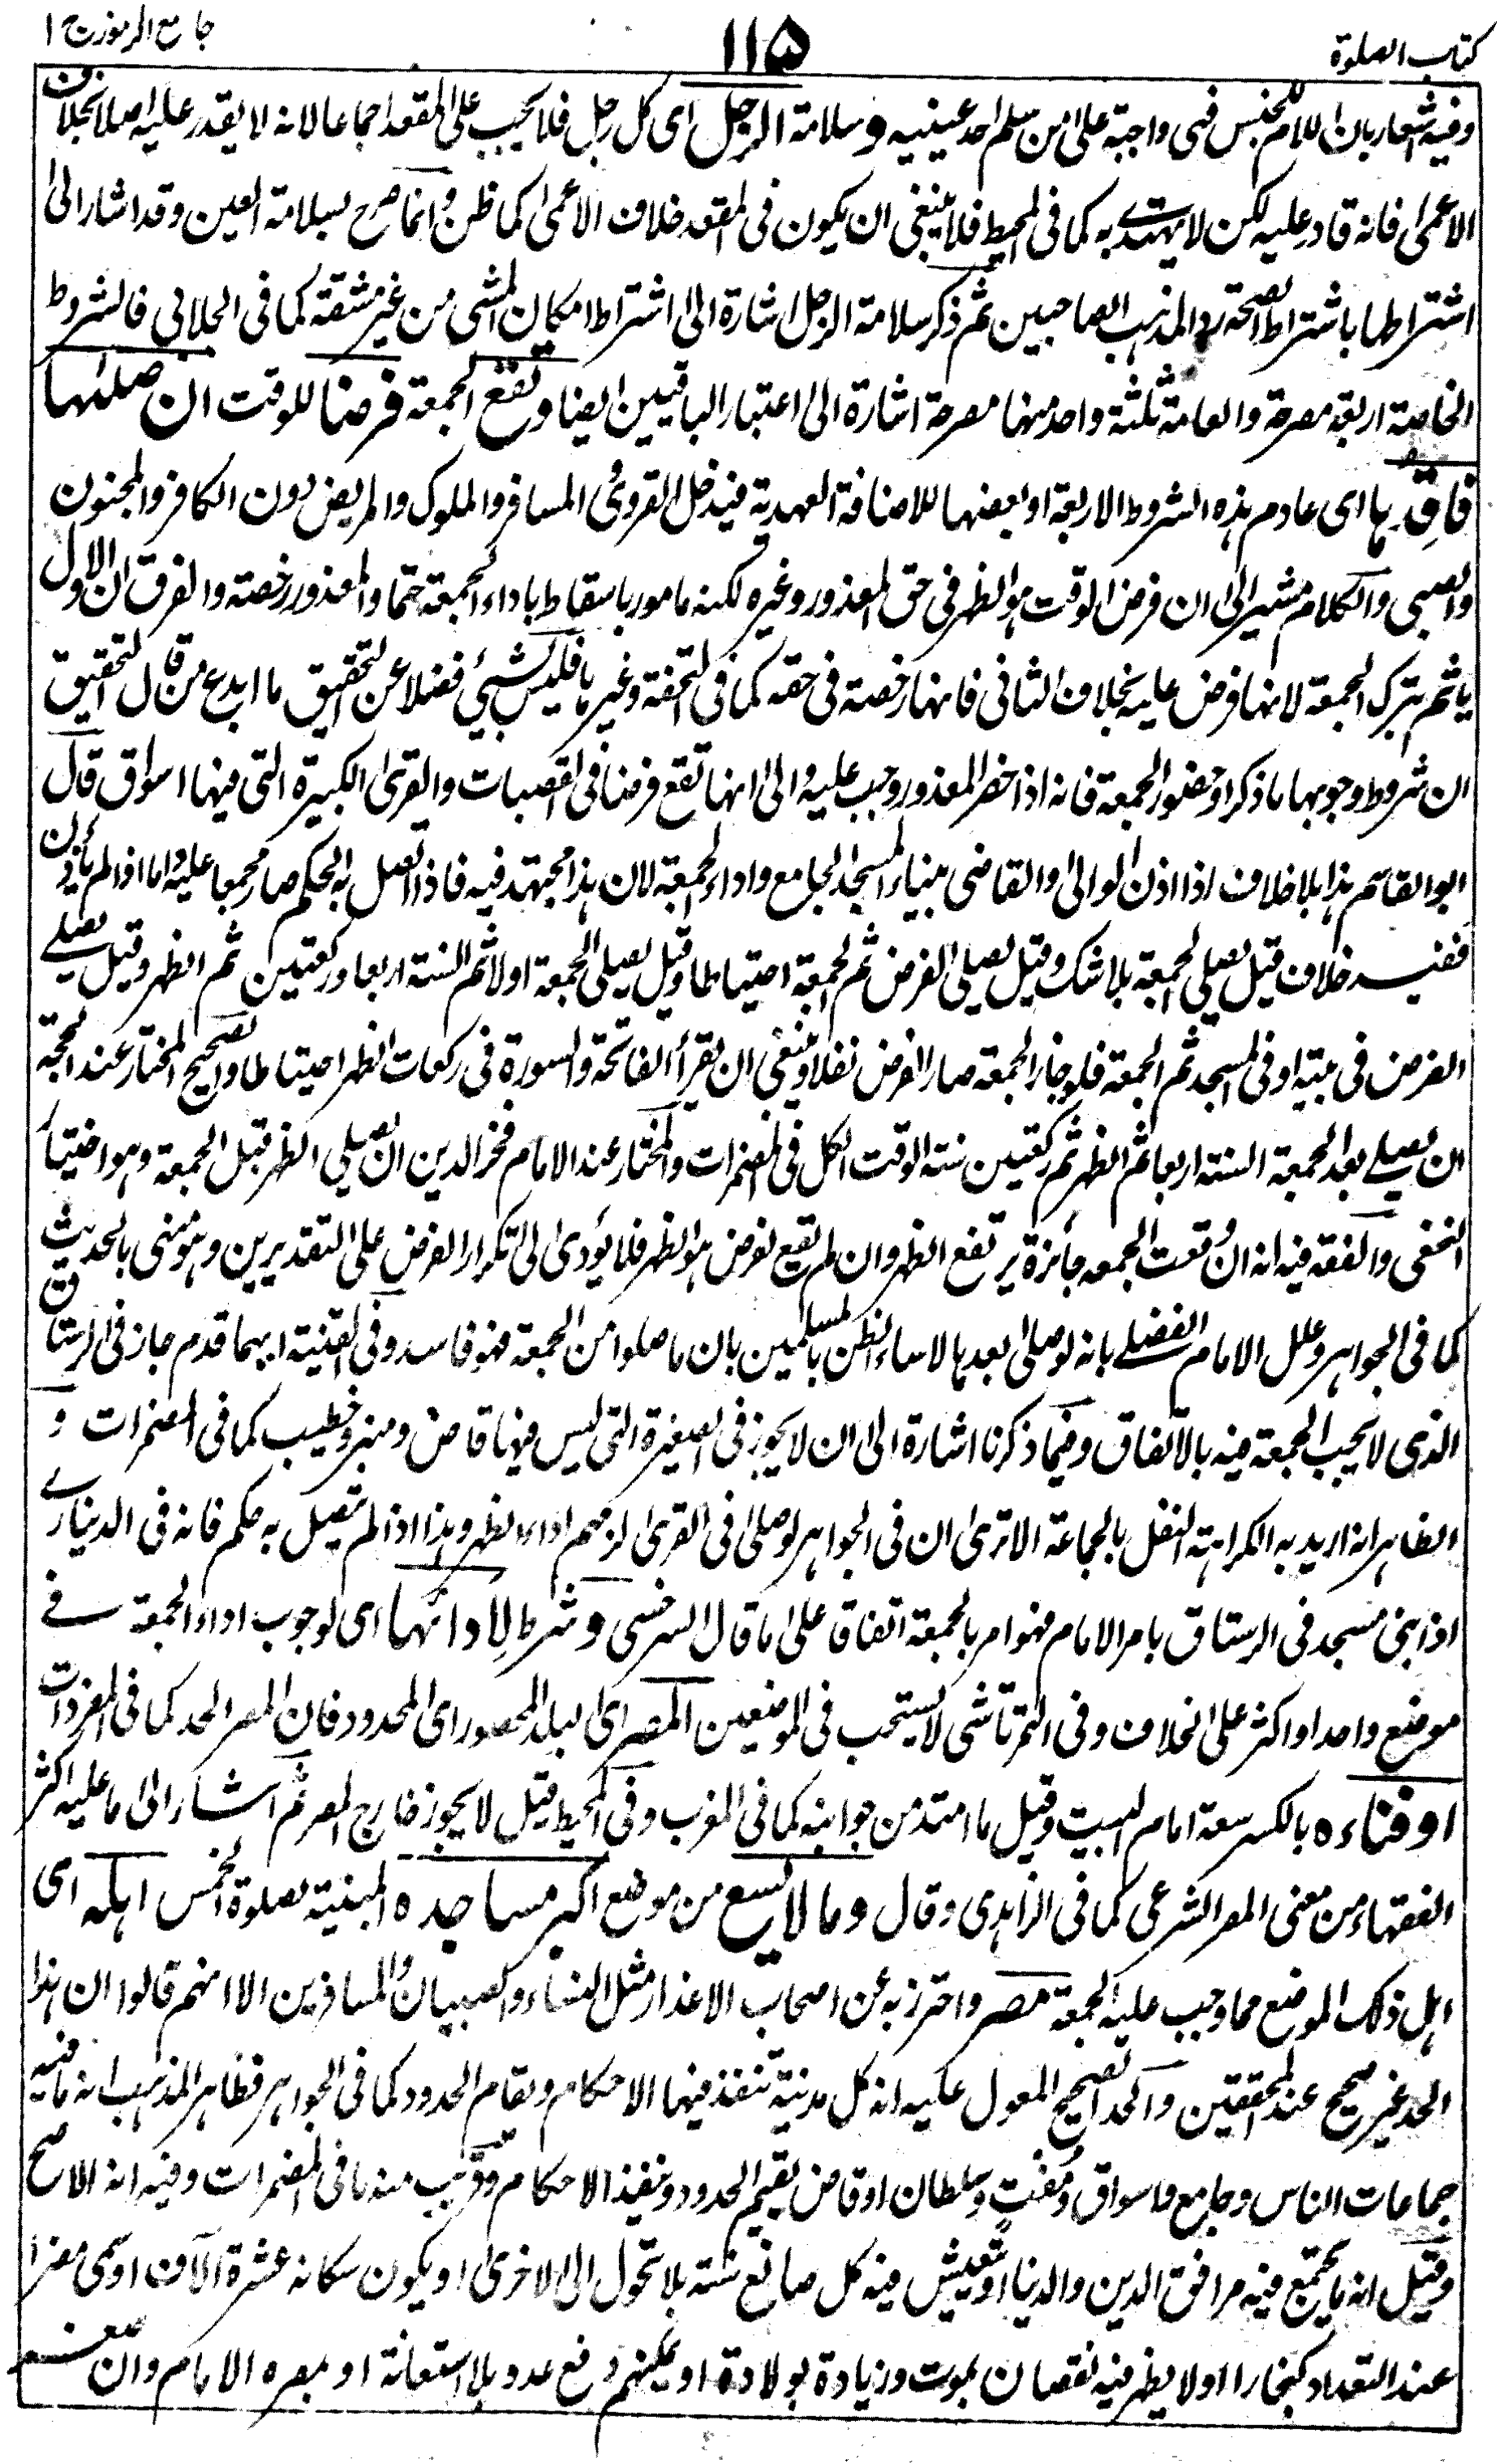 كتاب الصلوة
١١٥
جامع الرموز ج ١
وفيه اشعار بان اللام للجنس فهى واجبة على من سلم احد عينيه وسلامة الرجل اى كل رجل فلا يجب على المقعد اجماعا لانه لا يقدر عليه اصلا بخلاف
الاعمى فانه قادر عليه لكن لا يهتدى به كما فى المحيط فلا ينبغى ان يكون فى المقعد خلاف الاعمى كما ظن وانما صرح بسلامة العين وقد اشار الى
اشتراطها باشتراط الصحة ردا لمذهب الصاحبين ثم ذكر سلامة الرجل اشارة الى اشتراط امكان المشى من غير مشقة كما فى الجلابى فالشروط
الخاصة اربعة مصرحة والعامة ثلثة واحد منها مصرحة اشارة الى اعتبار الباقيين ايضا وتقع الجمعة فرضا للوقت ان صلىها
فاقدها اى عادم هذه الشروط الاربعة او بعضها للاضافة العهدية فيدخل القروى المسافر والمملوك والمريض دون الكافر والمجنون
والصبى والكلام مشير الى ان فرض الوقت هو الظهر فى حق المعذور وغيره لكنه مامور باسقاطه باداء الجمعة حتما والمعذور رخصة والفرق ان الاول
ياثم بترك الجمعة لانها فرض عليه بخلاف الثانى فانها رخصة فى حقه كما فى التحفة وغيرها فليس بشيئ فضلا عن التحقيق ما ابدع من قال التحقيق
ان شروط وجوبها ما ذكر او حضور الجمعة فانه اذا حضر المعذور وجب عليه والى انها تقع فرضا فى القصبات والقرى الكبيرة التى فيها اسواق قال
ابو القاسم هذا بلا خلاف اذا اذن الوالى والقاضى ببناء المسجد الجامع واداء الجمعة لان هذا مجتهد فيه فاذا اتصل به الحكم صار مجمعا عليه واما اذا لم ياذن
ففيه خلاف قيل يصلى الجمعة بلا شك وقيل يصلى الفرض ثم الجمعة احتياطا وقيل يصلى الجمعة اولا ثم السنة اربعا وركعتين ثم الظهر وقيل يصلى
الفرض فى بيته او فى المسجد ثم الجمعة فلو جاز الجمعة صار الفرض نفلا وينبغى ان يقرأ الفاتحة والسورة فى ركعات الظهر احتياطا والصحيح المختار عند الحجة
ان يصلى بعد الجمعة السنة اربعا ثم الظهر ثم ركعتين سنة الوقت الكل فى المضمرات والمختار عند الامام فخر الدين ان يصلى الظهر قبل الجمعة وهو اختيار
النخعى والفقه فيه انه ان وقعت الجمعة جائزة يرتفع الظهر وان لم تقع فرض هو الظهر فلا يؤدى الى تكرار الفرض على التقديرين وهو منهى بالحديث
كما فى الجواهر وعلل الامام الفضلى بانه لو صلى بعدها لاساء الظن بالمسلمين بان ما صلوا من الجمعة فهو فاسد وفى القنية ايهما قدم جاز فى الرستاق
الذى لا يجب الجمعة فيه بالاتفاق وفيما ذكرنا اشارة الى ان لا يجوز فى الصغيرة التى ليس فيها قاض ومنبر وخطيب كما فى المضمرات و
الظاهر انه اريد به الكراهة النفل بالجماعة الا ترى ان فى الجواهر لو صلى فى القرى لزمهم اداء الظهر وهذا اذا لم يتصل به حكم فانه فى الدينارى
اذا بنى مسجد فى الرستاق بامر الامام فهو امر بالجمعة اتفاقا على ما قال السرخسى وشرط لادائها اى لوجوب اداء الجمعة فى
موضع واحد او اكثر على الخلاف وفى التمرتاشى لا يستحب فى الموضعين المصر اى البلد المحصور اى المحدود فان المصر الحد كما فى المفردات
او فناءه بالكسر سعة امام البيت وقيل ما امتد من جوانبه كما فى المغرب وفى المحيط قيل لا يجوز خارج المصر ثم اشار الى ما عليه اكثر
الفقهاء من معنى المصر الشرعى كما فى الزاهدى وقال وما لا يسع من موضع اكبر مساجده المبنية لصلوة الخمس اهله اى
اهل ذلك الموضع مما وجب عليه الجمعة مصر واحترز به عن اصحاب الاعذار مثل النساء والصبيان والمسافرين الا انهم قالوا ان هذا
الحد غير صحيح عند المحققين والحد الصحيح المعول عليه انه كل مدينة تنفذ فيها الاحكام ويقام الحدود كما فى الجواهر فظاهر المذهب انه ما فيه
جماعات الناس وجامع واسواق ومفت وسلطان او قاض يقيم الحدود وينفذ الاحكام وقريب منه ما فى المضمرات وفيه انه الاصح
وقيل انه ما يجتمع فيه مرافق الدين والدنيا او يتعيش فيه كل صانع سنة بلا تحول الى الاخرى او يكون سكانه عشرة آلاف او سمى مصرا
عند التعداد كبخارا او لا يظهر فيه نقصان بموت وزيادة بولادة او يمكنهم دفع عدو بلا استعانة او بمصره الامام وان صغر